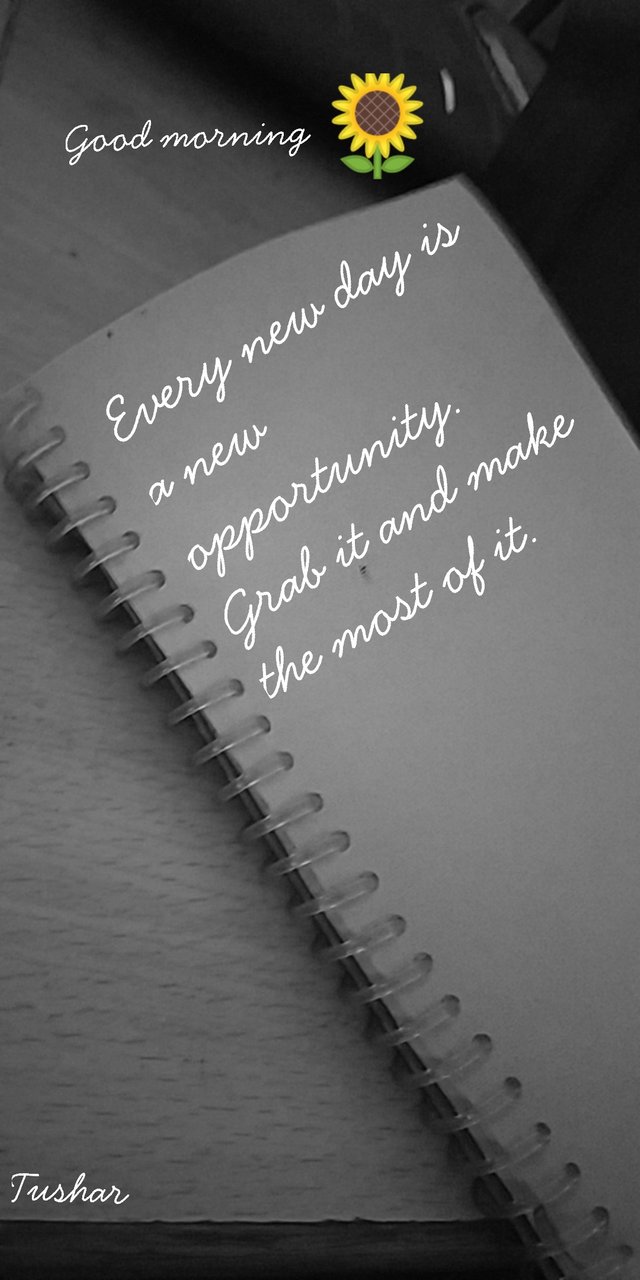 Good morning 🌻
Every new day is
a new
opportunity.
Grab it and make
the most of it.
Tushar